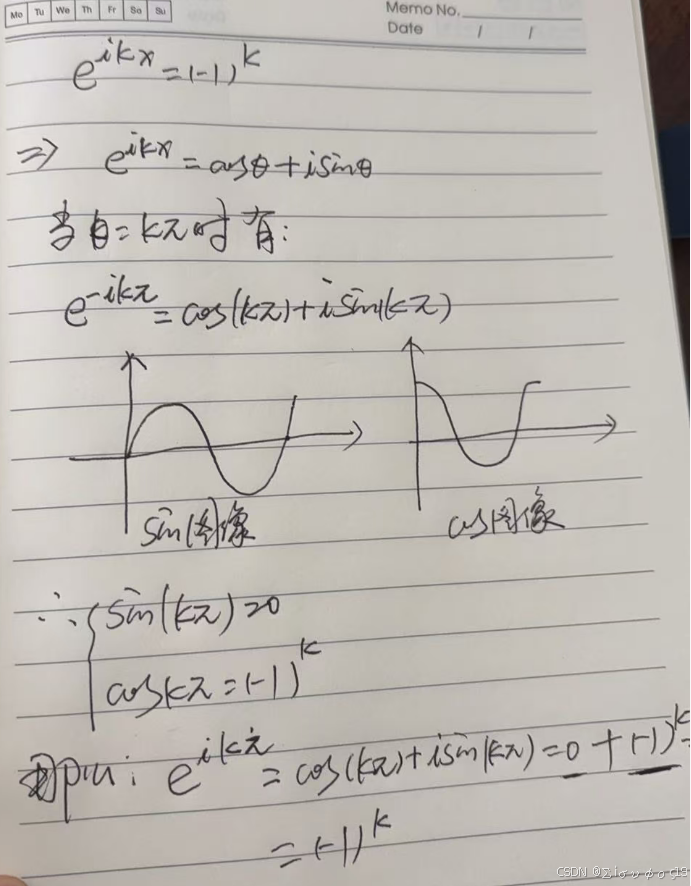 Mo Tu We Th Fr Sa Su
Memo No.
Date / /
e^{ikπ} = (-1)^k
⇒ e^{ikπ} = cosθ + isinθ
当θ=kπ时有:
e^{-ikπ} = cos(kπ) + isin(kπ)
sin图像
cos图像
∴ { sin(kπ) = 0
cos kπ = (-1)^k
e^{ikπ} = cos(kπ) + isin(kπ) = 0 + (-1)^k =
= (-1)^k